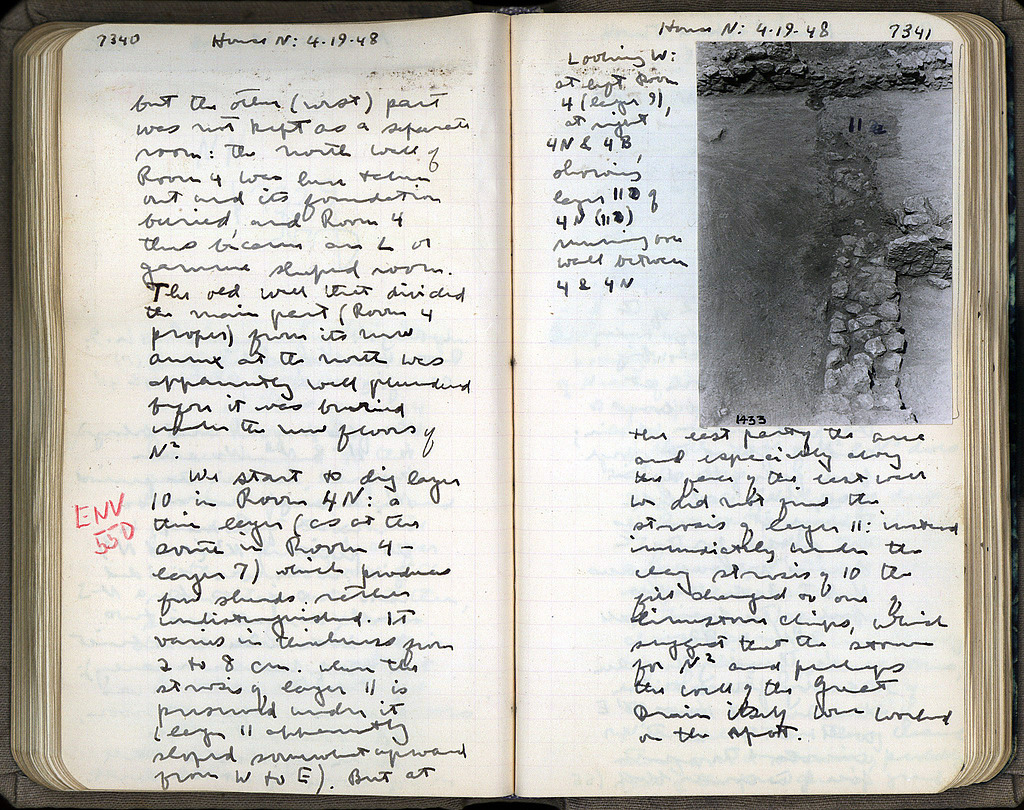 7340 House N: 4-19-48
but the other (west) part
was not kept as a separate
room: the north wall of
Room 4 was here taken
out and its foundation
buried, and Room 4
thus became an L or
gamma shaped room.
The old wall that divided
the main part (Room 4
proper) from its new
annex at the north was
apparently well plundered
before it was buried
under the new floors of
N²
We start to dig layer
10 in Room 4N: a
thin layer (as at the
south in Room 4 -
layer 7) which produces
few sherds, rather
undistinguished. It
varies in thickness from
2 to 8 cm. when the
strosis of layer 11 is
preserved under it
(layer 11 apparently
sloped somewhat upward
from W to E). But at
ENV
55D
House N: 4-19-48 7341
Looking W:
at left Room
4 (layer 9),
at right
4N & 4B,
showing
layer 11 of
4N (11)
running over
wall between
4 & 4N
11
1433
the east part of the area
and especially along
the face of the east wall
we did not find the
strosis of layer 11: instead
immediately under the
clay strosis of 10 the
fill changed to one of
limestone chips, which
suggest that the stones
for N² and perhaps
the wall of the Great
Drain itself were worked
on the spot.